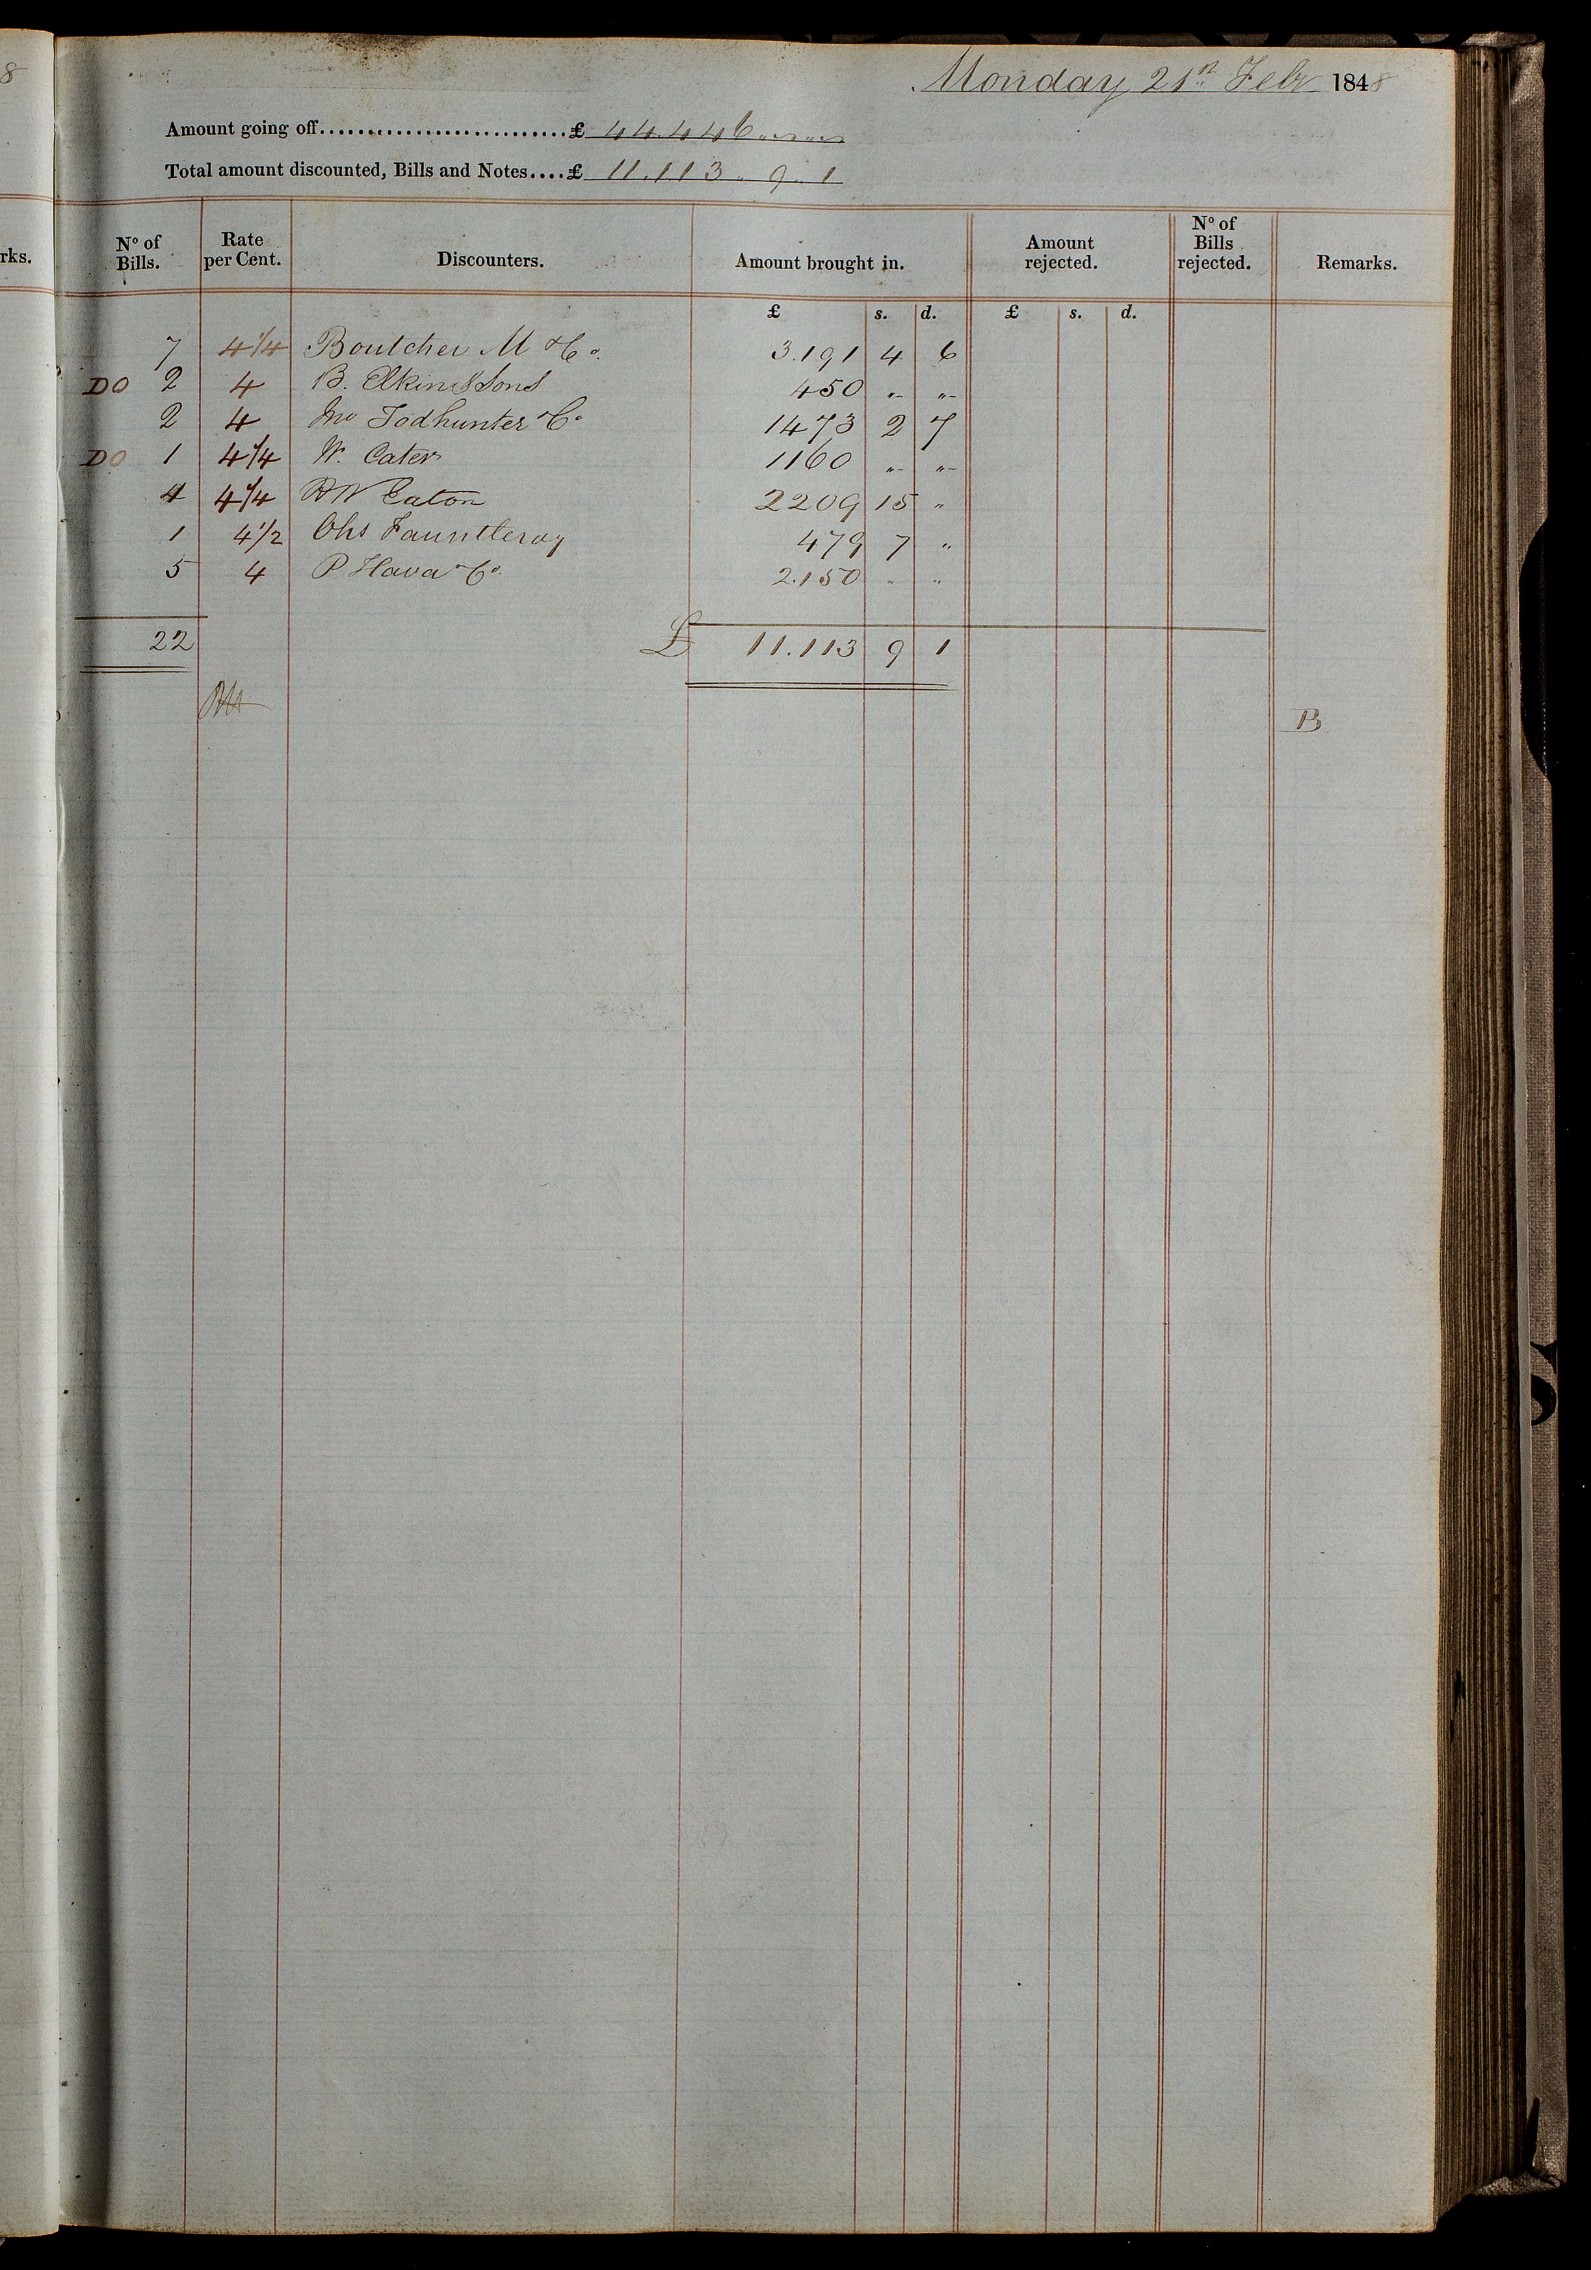 8
Monday 21st Feby 1848
Amount going off..........................£ 44.446 " "
Total amount discounted, Bills and Notes....£ 11.113 " 9 " 1
rks.
No of Bills. Rate per Cent. Discounters. Amount brought in. Amount rejected. No of Bills rejected. Remarks.
£ s. d. £ s. d.
7 4 1/4 Boutcher M & Co. 3.191 4 6
DO 2 4 B. Elkin & Sons 450 " "
2 4 Jno Todhunter & Co 1473 2 7
DO 1 4 1/4 W. Cater 1160 " "
4 4 1/4 H W Eaton 2209 15 "
1 4 1/2 Chs Fauntleroy 479 7 "
5 4 P Hava & Co. 2.150 " "
22 £ 11.113 9 1
B